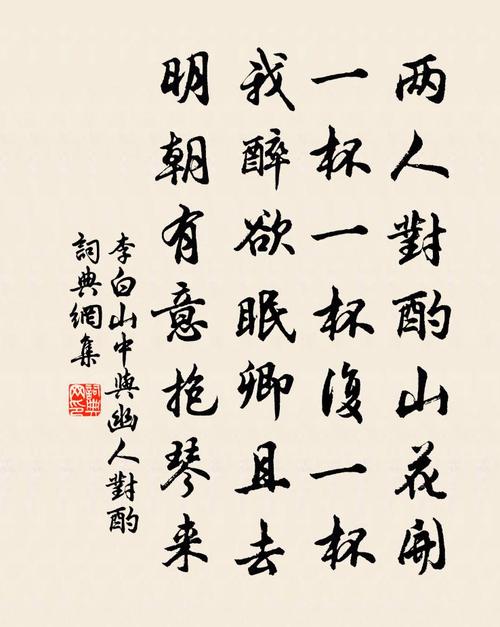 两人對酌山花開
一杯一杯復一杯
我醉欲眠卿且去
明朝有意抱琴来
李白山中與幽人對酌
詞典網集
詞典网印